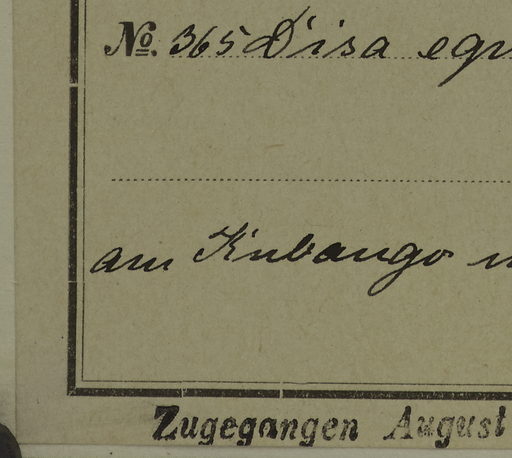 No. 365 Disa
am Kubango
Zugegangen August